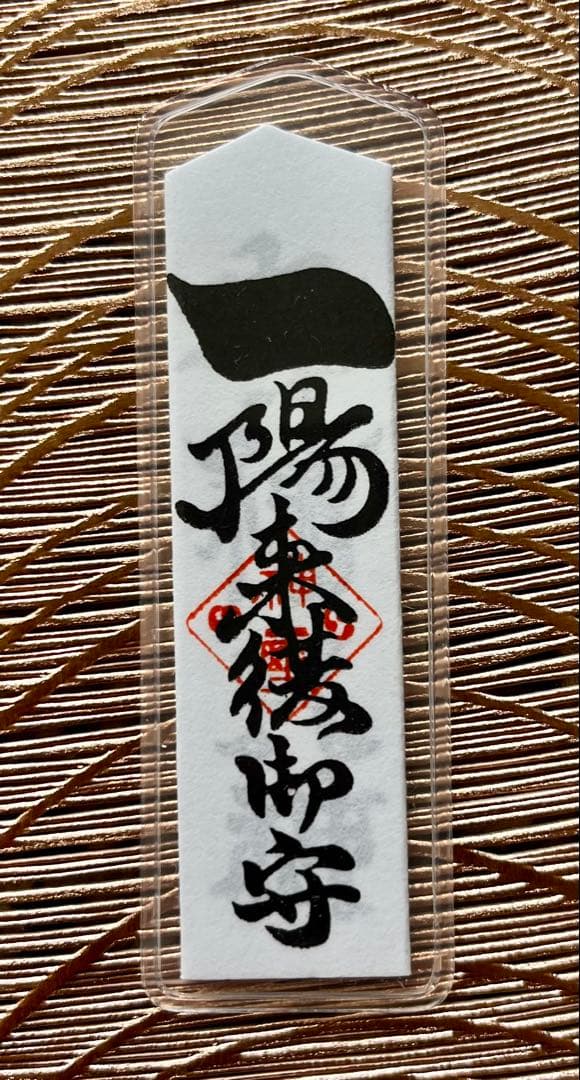 一陽来復御守